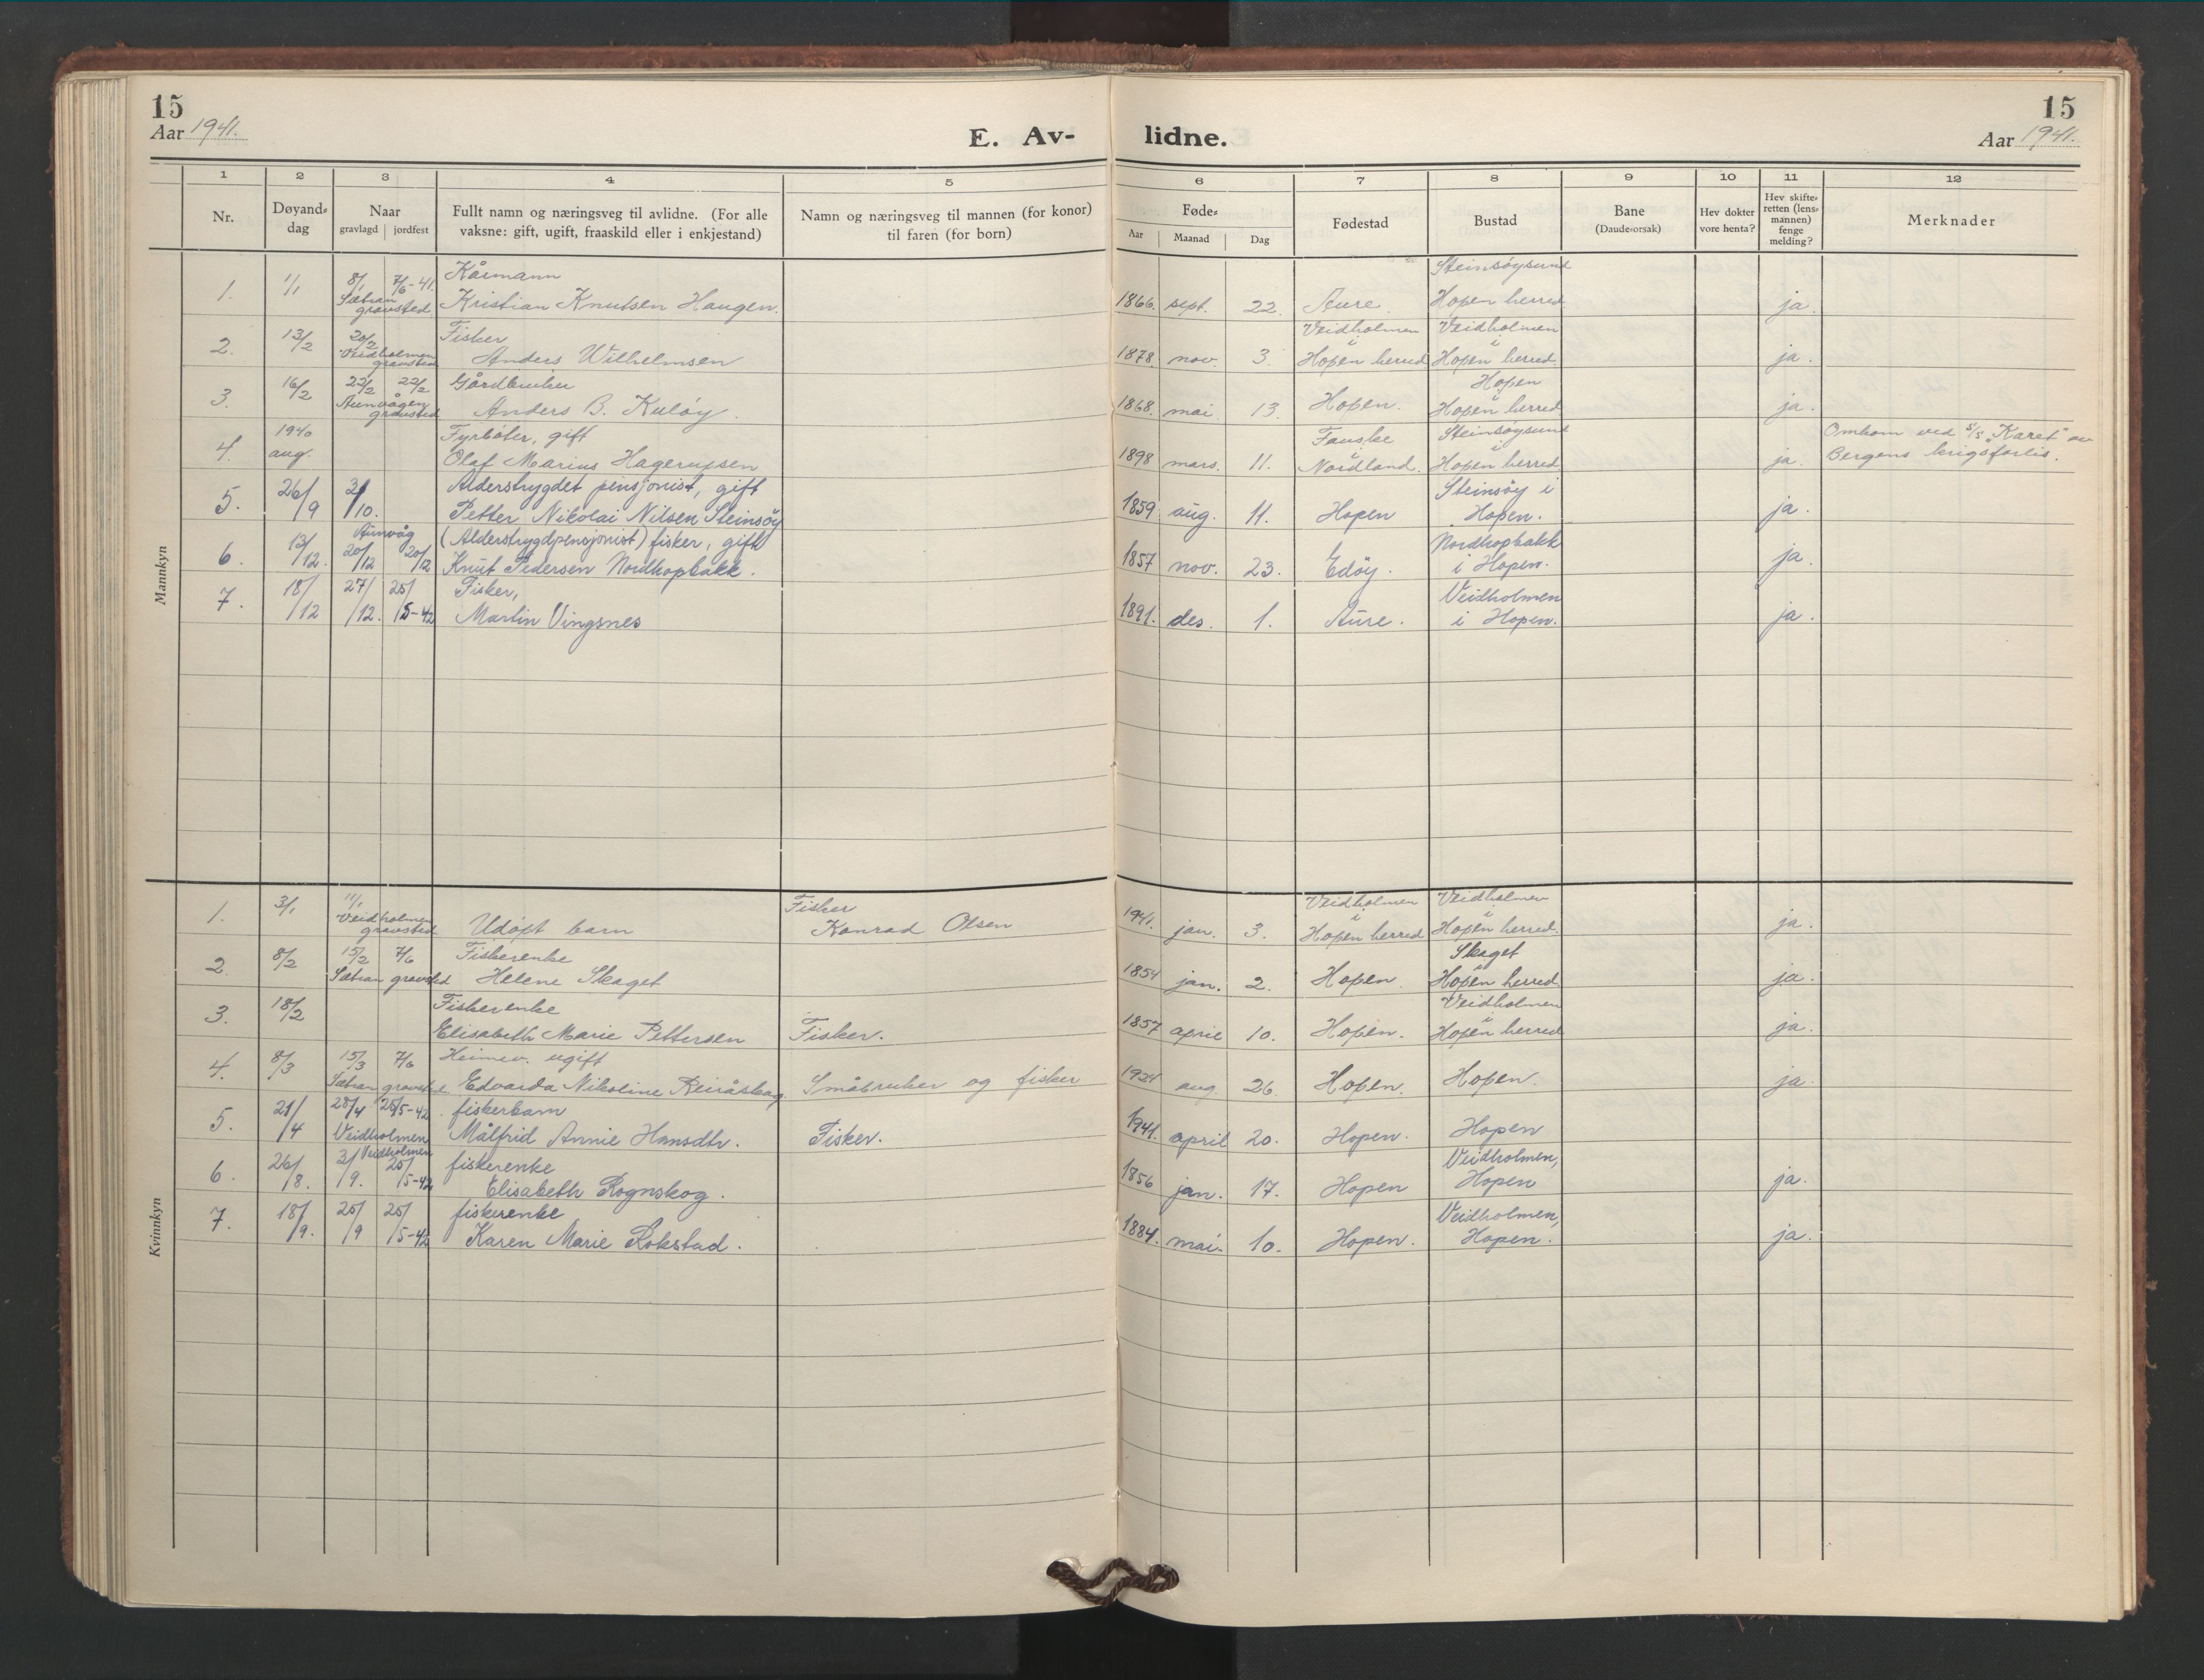 15
Aar 1941.
E. Av-
lidne.
15
Aar 1941.
1 2 3 4 5 6 7 8 9 10 11 12
Nr.
Døyand-
dag
Naar
gravlagd jordfest
Fullt namn og næringsveg til avlidne. (For alle
vaksne: gift, ugift, fraaskild eller i enkjestand)
Namn og næringsveg til mannen (for konor)
til faren (for born)
Føde-
Aar Maanad Dag
Fødestad
Bustad
Bane
(Daude-orsak)
Hev dokter
vore henta?
Hev skifte-
retten (lens-
mannen)
fenge
melding?
Merknader
Mannkyn
1. 1/1 8/1 7/6-41. Kårmann Steinsøysund
Sætran gravsted. Kristian Knutsen Haugen. 1866. sept. 22. Aure. Hopen herred ja.
2. 13/2 20/2 Fisker Veidholmen i Veidholmen i
Veidholmen gravsted Anders Wilhelmsen 1878. nov. 3. Hopen herred Hopen herred. ja.
3. 16/2 22/2 22/2 Gårdbruker Hopen i
Aunvågen gravsted Anders B. Kuløy. 1868. mai. 13. Hopen. Hopen herred ja.
4. 1940 aug. Fyrbøter, gift Fauske Steinsøysund i Omkom ved s/s "Karet" av
Olaf Marius Hagerupsen 1898 mars. 11. Nordland. Hopen herred ja. Bergens krigsforlis.
5. 26/9 3/10. Alderstrygdet pensjonist, gift Steinsøy i
Petter Nikolai Nilsen Steinsøy 1859 aug. 11. Hopen Hopen. ja.
6. 13/12. Aunvåg 20/12 20/12 (Alderstrygdpensjonist) fisker, gift Nordhopbakk
Knut Pedersen Nordhopbakk. 1857 nov. 23. Edøy. i Hopen. ja.
7. 18/12 27/12. 25/5-42 Fisker, Veidholmen
Martin Vingsnes 1891. des. 1. Aure. i Hopen. ja.
Kvinnkyn
1. 3/1 11/1 Fisker Veidholmen i Veidholmen i
Veidholmen gravsted Udøpt barn Konrad Olsen 1941. jan. 3. Hopen herred Hopen herred. ja.
2. 8/2 15/2 7/6 Fiskerenke Skaget i
Sætran gravsted Helene Skaget 1854 jan. 2. Hopen. Hopen herred. ja.
3. 18/2 Fiskerenke Veidholmen i
Elisabeth Marie Pettersen Fisker. 1857 april 10. Hopen. Hopen herred ja.
4. 8/3 15/3 7/6 Heimev. ugift
Sætran gravsted. Edvarda Nikoline Reiråskag. Småbruker og fisker 1921 aug. 26. Hopen. Hopen. ja.
5. 21/4 28/4 25/5-42. fiskerbarn
Veidholmen Målfrid Annie Hansdtr. Fisker. 1941. april 20. Hopen. Hopen
6. 26/8. 3/9. Veidholmen 25/5-42 fiskerenke Veidholmen,
Elisabeth Rognskog. 1856 jan. 17. Hopen Hopen ja.
7. 18/9. 25/9 25/5-42 fiskerenke Veidholmen,
Karen Marie Rokstad. 1884. mai. 10. Hopen. Hopen. ja.